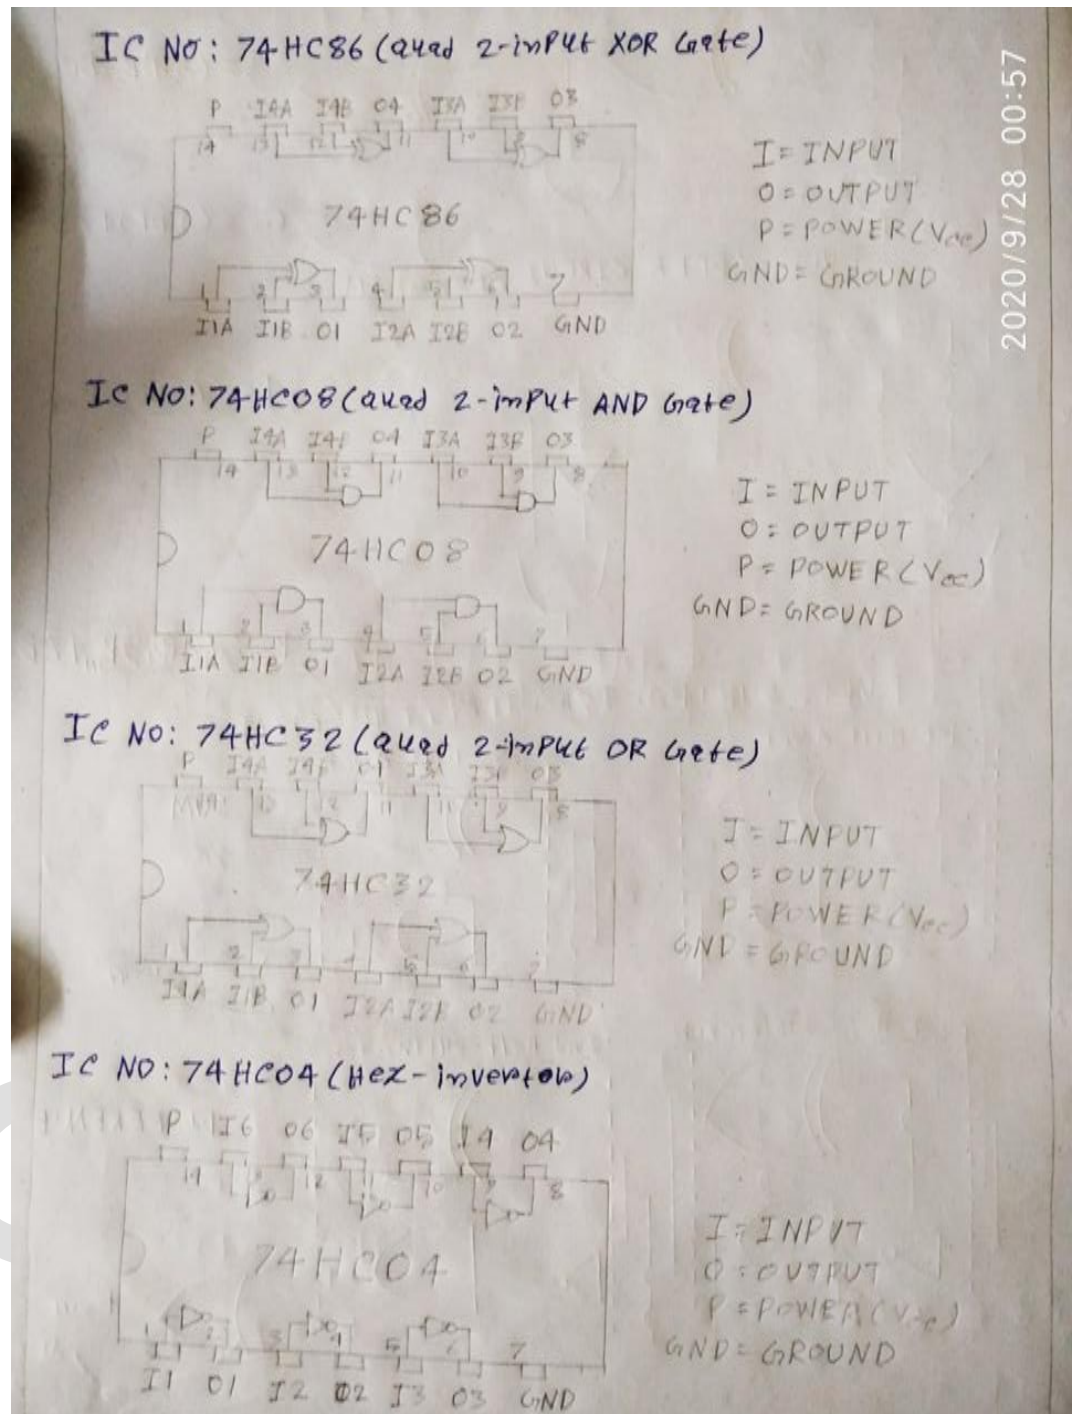 IC NO: 74HC86 (quad 2-input XOR Gate)
P I4A I4B O4 I3A I3B O3
14 13 12 11 10 9 8
74HC86
1 2 3 4 5 6 7
I1A I1B O1 I2A I2B O2 GND
I = INPUT
O = OUTPUT
P = POWER (Vcc)
GND = GROUND
2020/9/28 00:57
IC NO: 74HC08 (quad 2-input AND Gate)
P I4A I4B O4 I3A I3B O3
14 13 12 11 10 9 8
74HC08
1 2 3 4 5 6 7
I1A I1B O1 I2A I2B O2 GND
I = INPUT
O = OUTPUT
P = POWER (Vcc)
GND = GROUND
IC NO: 74HC32 (quad 2-input OR Gate)
P I4A I4B O1 I3A I3B O3
13 12 11 11 9 8
74HC32
1 2 3 4 5 6 7
I1A I1B O1 I2A I2B O2 GND
I = INPUT
O = OUTPUT
P = POWER (Vcc)
GND = GROUND
IC NO: 74HC04 (Hex-invertor)
P I6 O6 I5 O5 I4 O4
14 12 11 10 9 8
74HC04
1 2 3 4 5 6 7
I1 O1 I2 O2 I3 O3 GND
I = INPUT
O = OUTPUT
P = POWER (Vcc)
GND = GROUND